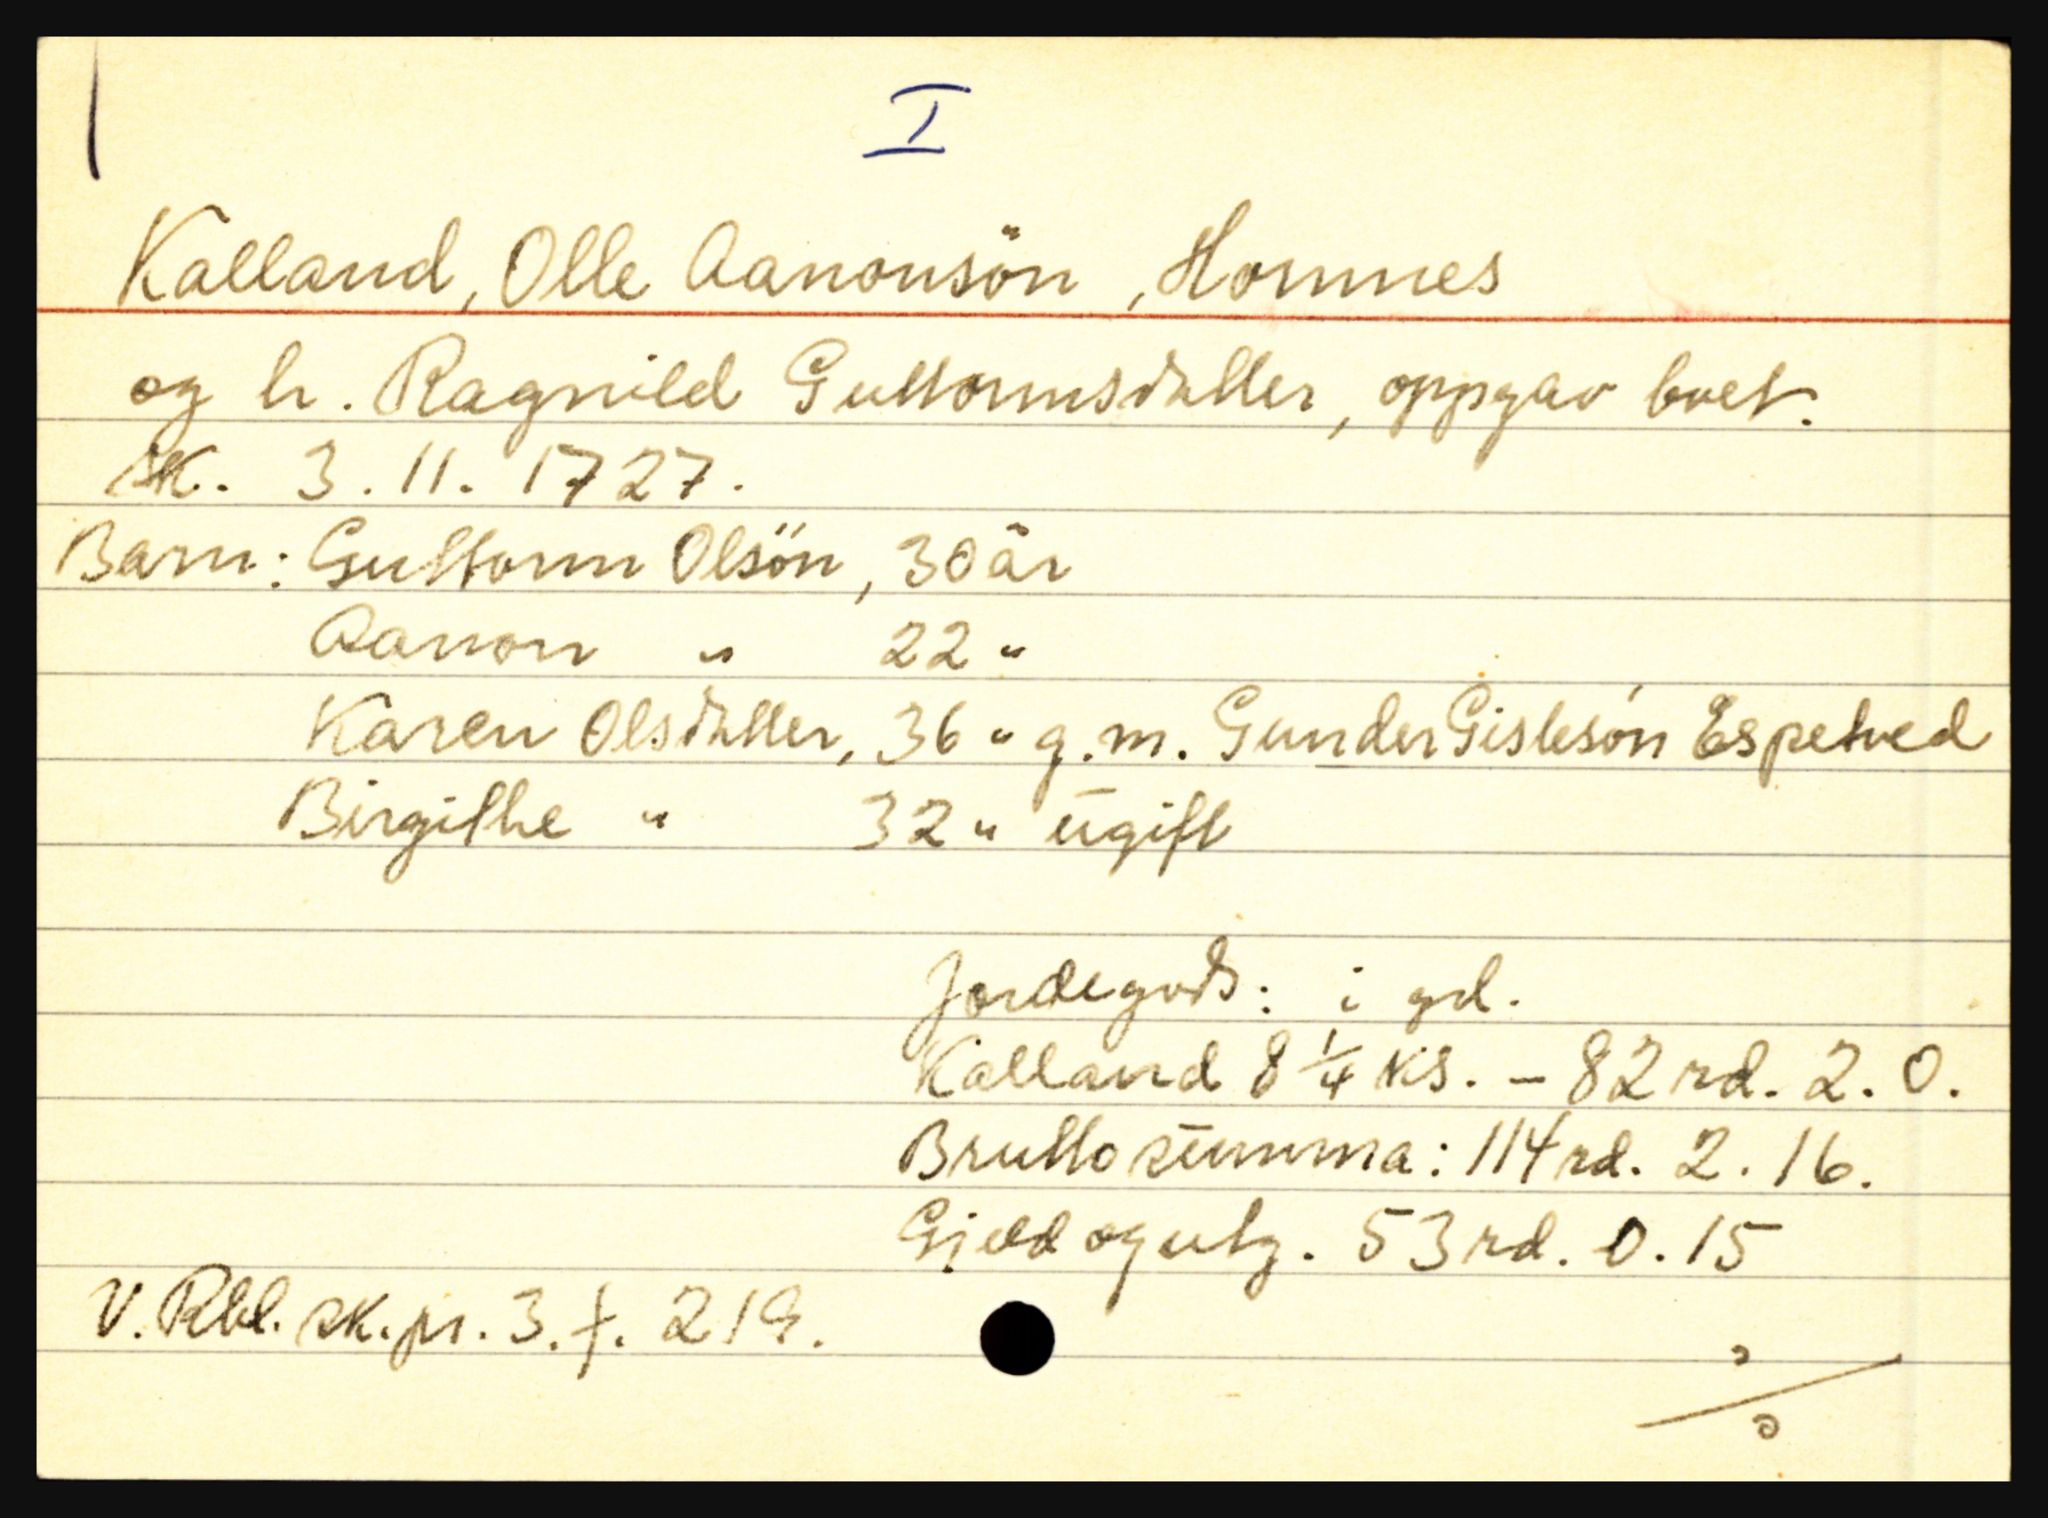 I
Kalland, Olle Aanonsön, Homnes
og h. Ragnild Guttormsdatter, oppgav boet.
sk. 3.11.1727.
Barn: Guttorm Olsön, 30 år
Aanon " 22 "
Karen Olsdatter, 36 " g.m. Gunder Gislesön Espetved
Birgithe " 32 " ugift
Jordegods: i gd.
Kalland 8 1/4 ks. - 82 rd. 2. 0.
Brutto summa: 114 rd. 2. 16.
Gjeld og utg. 53 rd. 0. 15
V. Rbl. sk.pr. 3. f. 219.